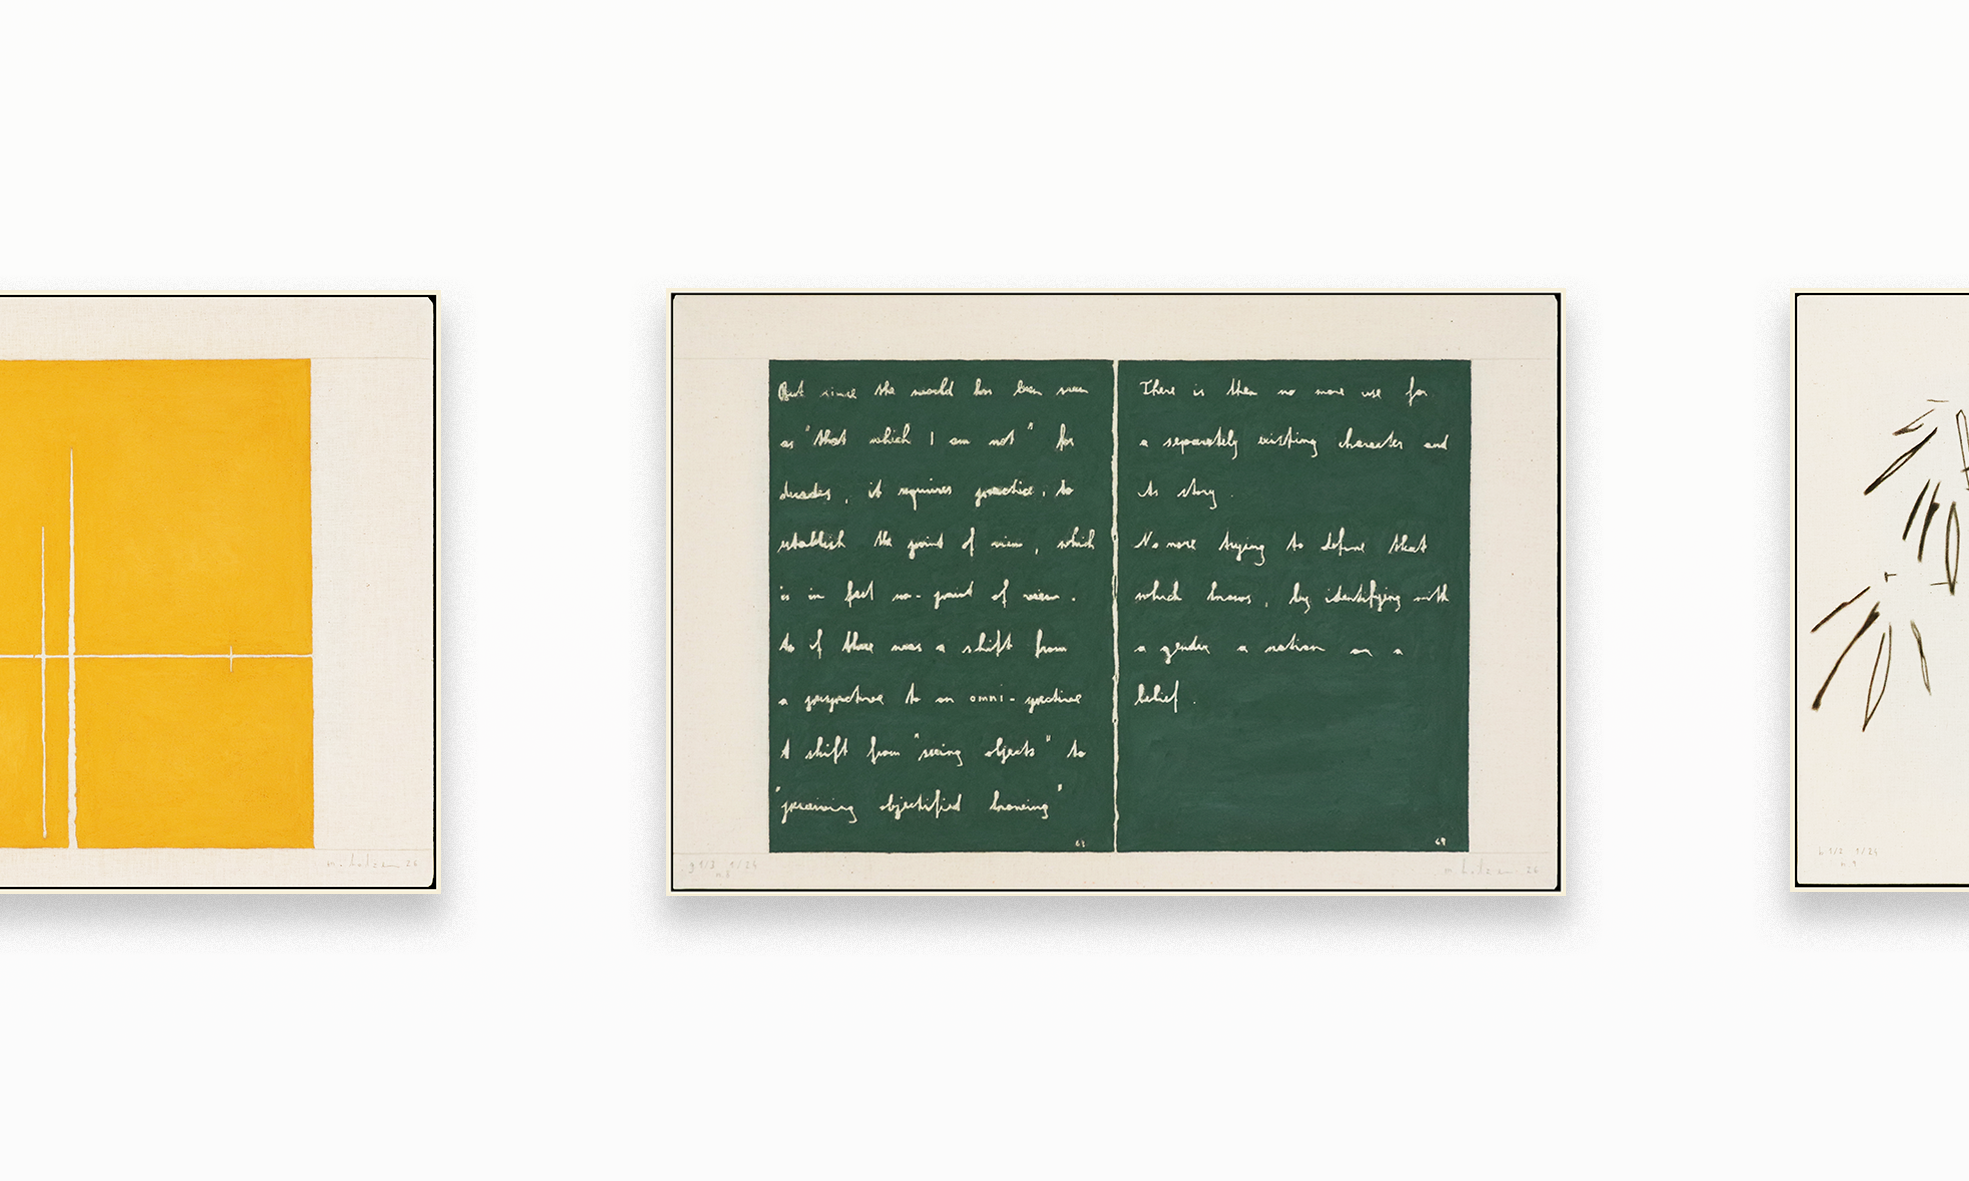 But since the world has been seen
as "that which I am not" for
decades, it requires practice, to
establish the point of view, which
is in fact no-point of view.
as if there was a shift from
a perspective to an omni-spective
A shift from "seeing objects" to
"perceiving objectified knowing"
63
There is then no more use for
a separately existing character and
its story.
No more trying to define that
which knows, by identifying with
a gender a nation or a
belief.
64